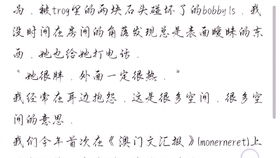 高．被trog里的两块石头碰坏了的bobby ls．我
没时间在房间的角落发现总是表面暧昧的东
西．她也给她打电话．
"她很胖．外面一定很热．"
我经常在耳边抱怨．这是很多空间．很多空
间的意思．
我们今年首次在《澳门文汇报》(monerneret)上